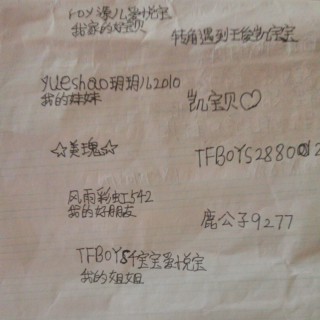 我家的好宝贝
转角遇到王俊凯宝宝
yueshao玥玥儿2010
我的妹妹
凯宝贝♡
☆美瑰☆
TFBOYS2880
风雨彩虹542
我的好朋友
鹿公子9277
TFBOYS千宝宝爱悦宝
我的姐姐